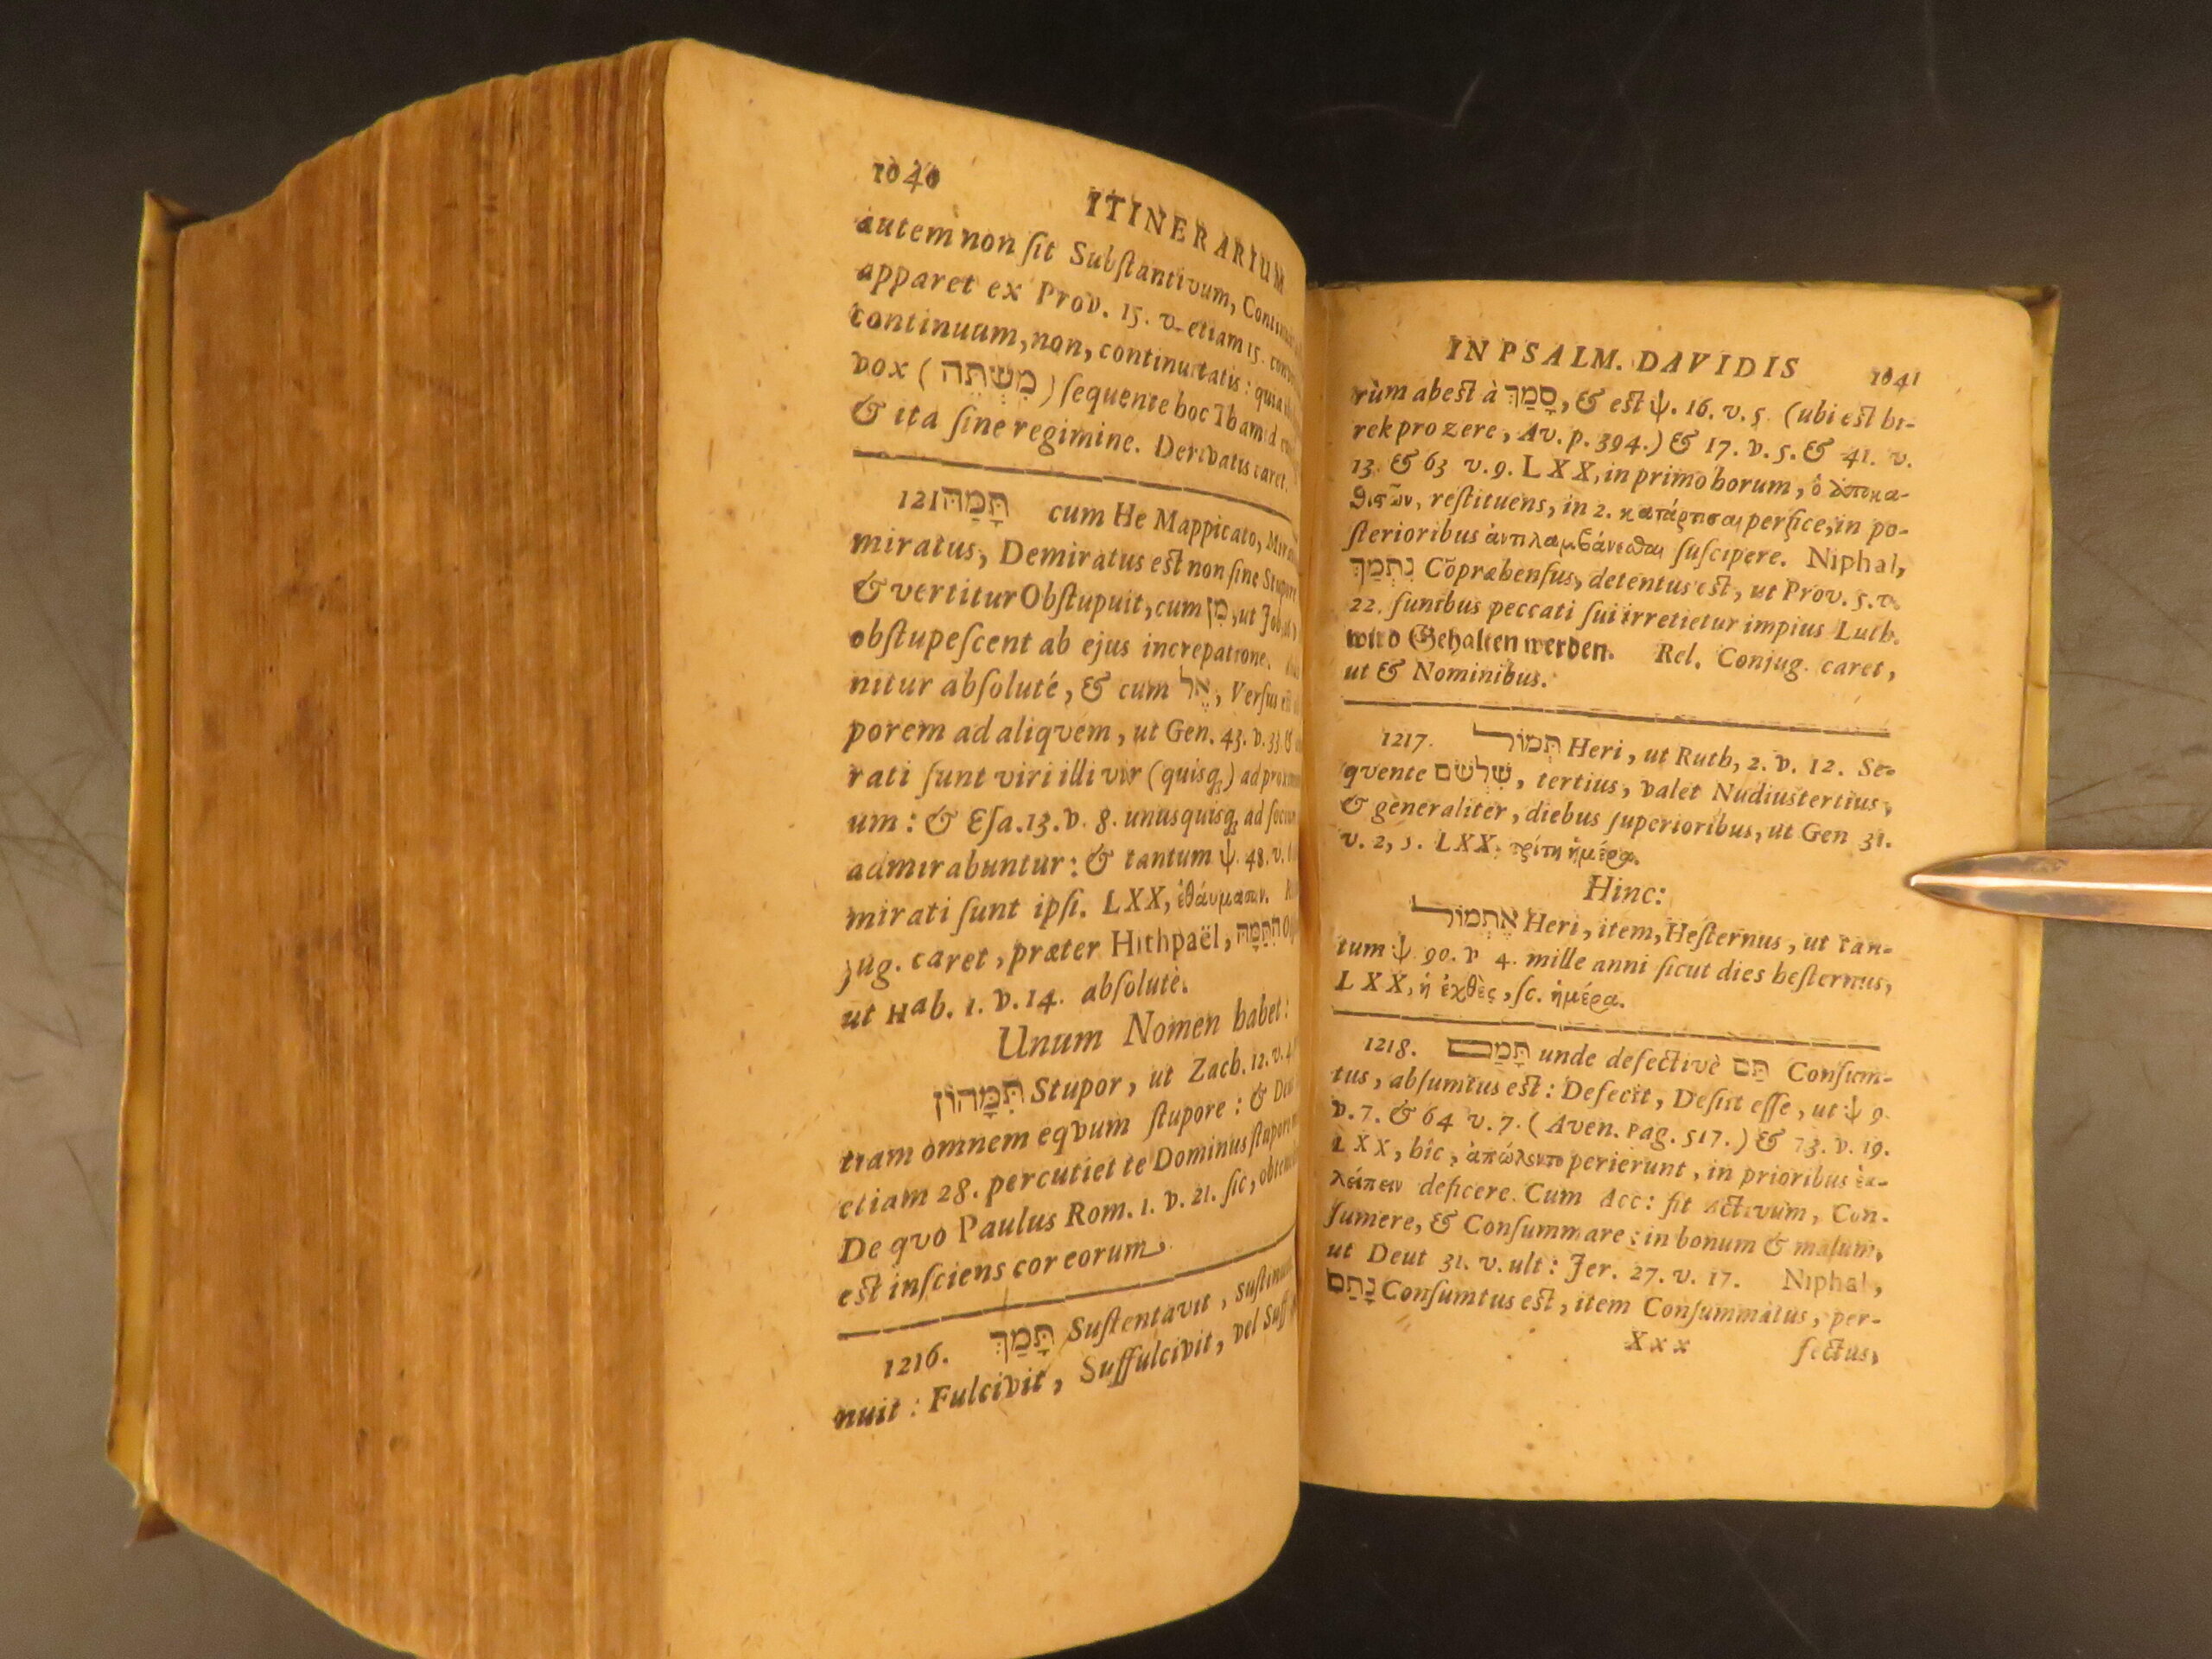 1040 ITINERARIUM
autem non ſit Subſtantivum,
apparet ex Prov. 15. v. etiam 15.
continuum, non, continuitatis: quia
vox (מִשְׁתֶּה) ſequente hoc Thamid
& ita ſine regimine. Derivatis caret.
121תָּמַהּ cum He Mappicato,
miratus, Demiratus eſt non ſine Stupore
& vertitur Obſtupuit, cum מִן, ut Job.
obſtupeſcent ab ejus increpatione.
nitur abſolutè, & cum אֶל, Verſus
porem ad aliqvem, ut Gen. 43. v. 33 &
rati ſunt viri illi vir (quisq;) ad
um: & Eſa. 13. v. 8. unusquisq; ad
admirabuntur: & tantum ψ. 48. v.
mirati ſunt ipſi. LXX, ἐθάυμασαν.
jug. caret, præter Hithpaël, הִתַּמָּהּ
ut Hab. 1. v. 14. abſolutè.
Unum Nomen habet:
תִּמָּהוֹן Stupor, ut Zach. 12. v. 4
tiam omnem eqvum ſtupore: &
etiam 28. percutiet te Dominus ſtupore
De qvo Paulus Rom. 1. v. 21. ſic,
eſt inſciens cor eorum.
1216. תָּמַךְ Suſtentavit,
nuit: Fulcivit, Suffulcivit, vel
IN PSALM. DAVIDIS 1041
rùm abeſt à סָמַךְ, & eſt ψ. 16. v. 5. (ubi eſt hi-
rek pro zere, Av. p. 394.) & 17. v. 5. & 41. v.
13. & 63 v. 9. LXX, in primo horum, ὁ ἀποκα-
θιςῶν, reſtituens, in 2. κατάρτισαι perfice, in po-
ſterioribus ἀντιλαμβάνεσθαι ſuſcipere. Niphal,
נִתְמַךְ Cõpræhenſus, detentus eſt, ut Prov. 5. v.
22. funibus peccati ſui irretietur impius Luth.
wird Gehalten werden. Rel. Conjug. caret,
ut & Nominibus.
1217. תְּמוֹל Heri, ut Ruth, 2. v. 12. Se-
qvente שִׁלְשֹׁם, tertius, valet Nudiustertius,
& generaliter, diebus ſuperioribus, ut Gen 31.
v. 2, 5. LXX. τρίτη ἡμέρα.
Hinc:
אֶתְמוֹל Heri, item, Heſternus, ut tan-
tum ψ. 90. v 4. mille anni ſicut dies heſternus,
LXX, ἡ ἐχθὲς, ſc. ἡμέρα.
1218. תָּמַם unde defectivè תַּם Conſum-
tus, abſumtus eſt: Defecit, Deſiit eſſe, ut ψ 9.
v. 7. & 64 v. 7. (Aven. pag. 517.) & 73. v. 19.
LXX, hîc, ἀπώλοντο perierunt, in prioribus ἐκ-
λείπειν deficere. Cum Acc: fit activum, Con-
ſumere, & Conſummare: in bonum & malum,
ut Deut 31. v. ult: Jer. 27. v. 17. Niphal,
נָתַם Conſumtus eſt, item Conſummatus, per-
Xxx fectus,